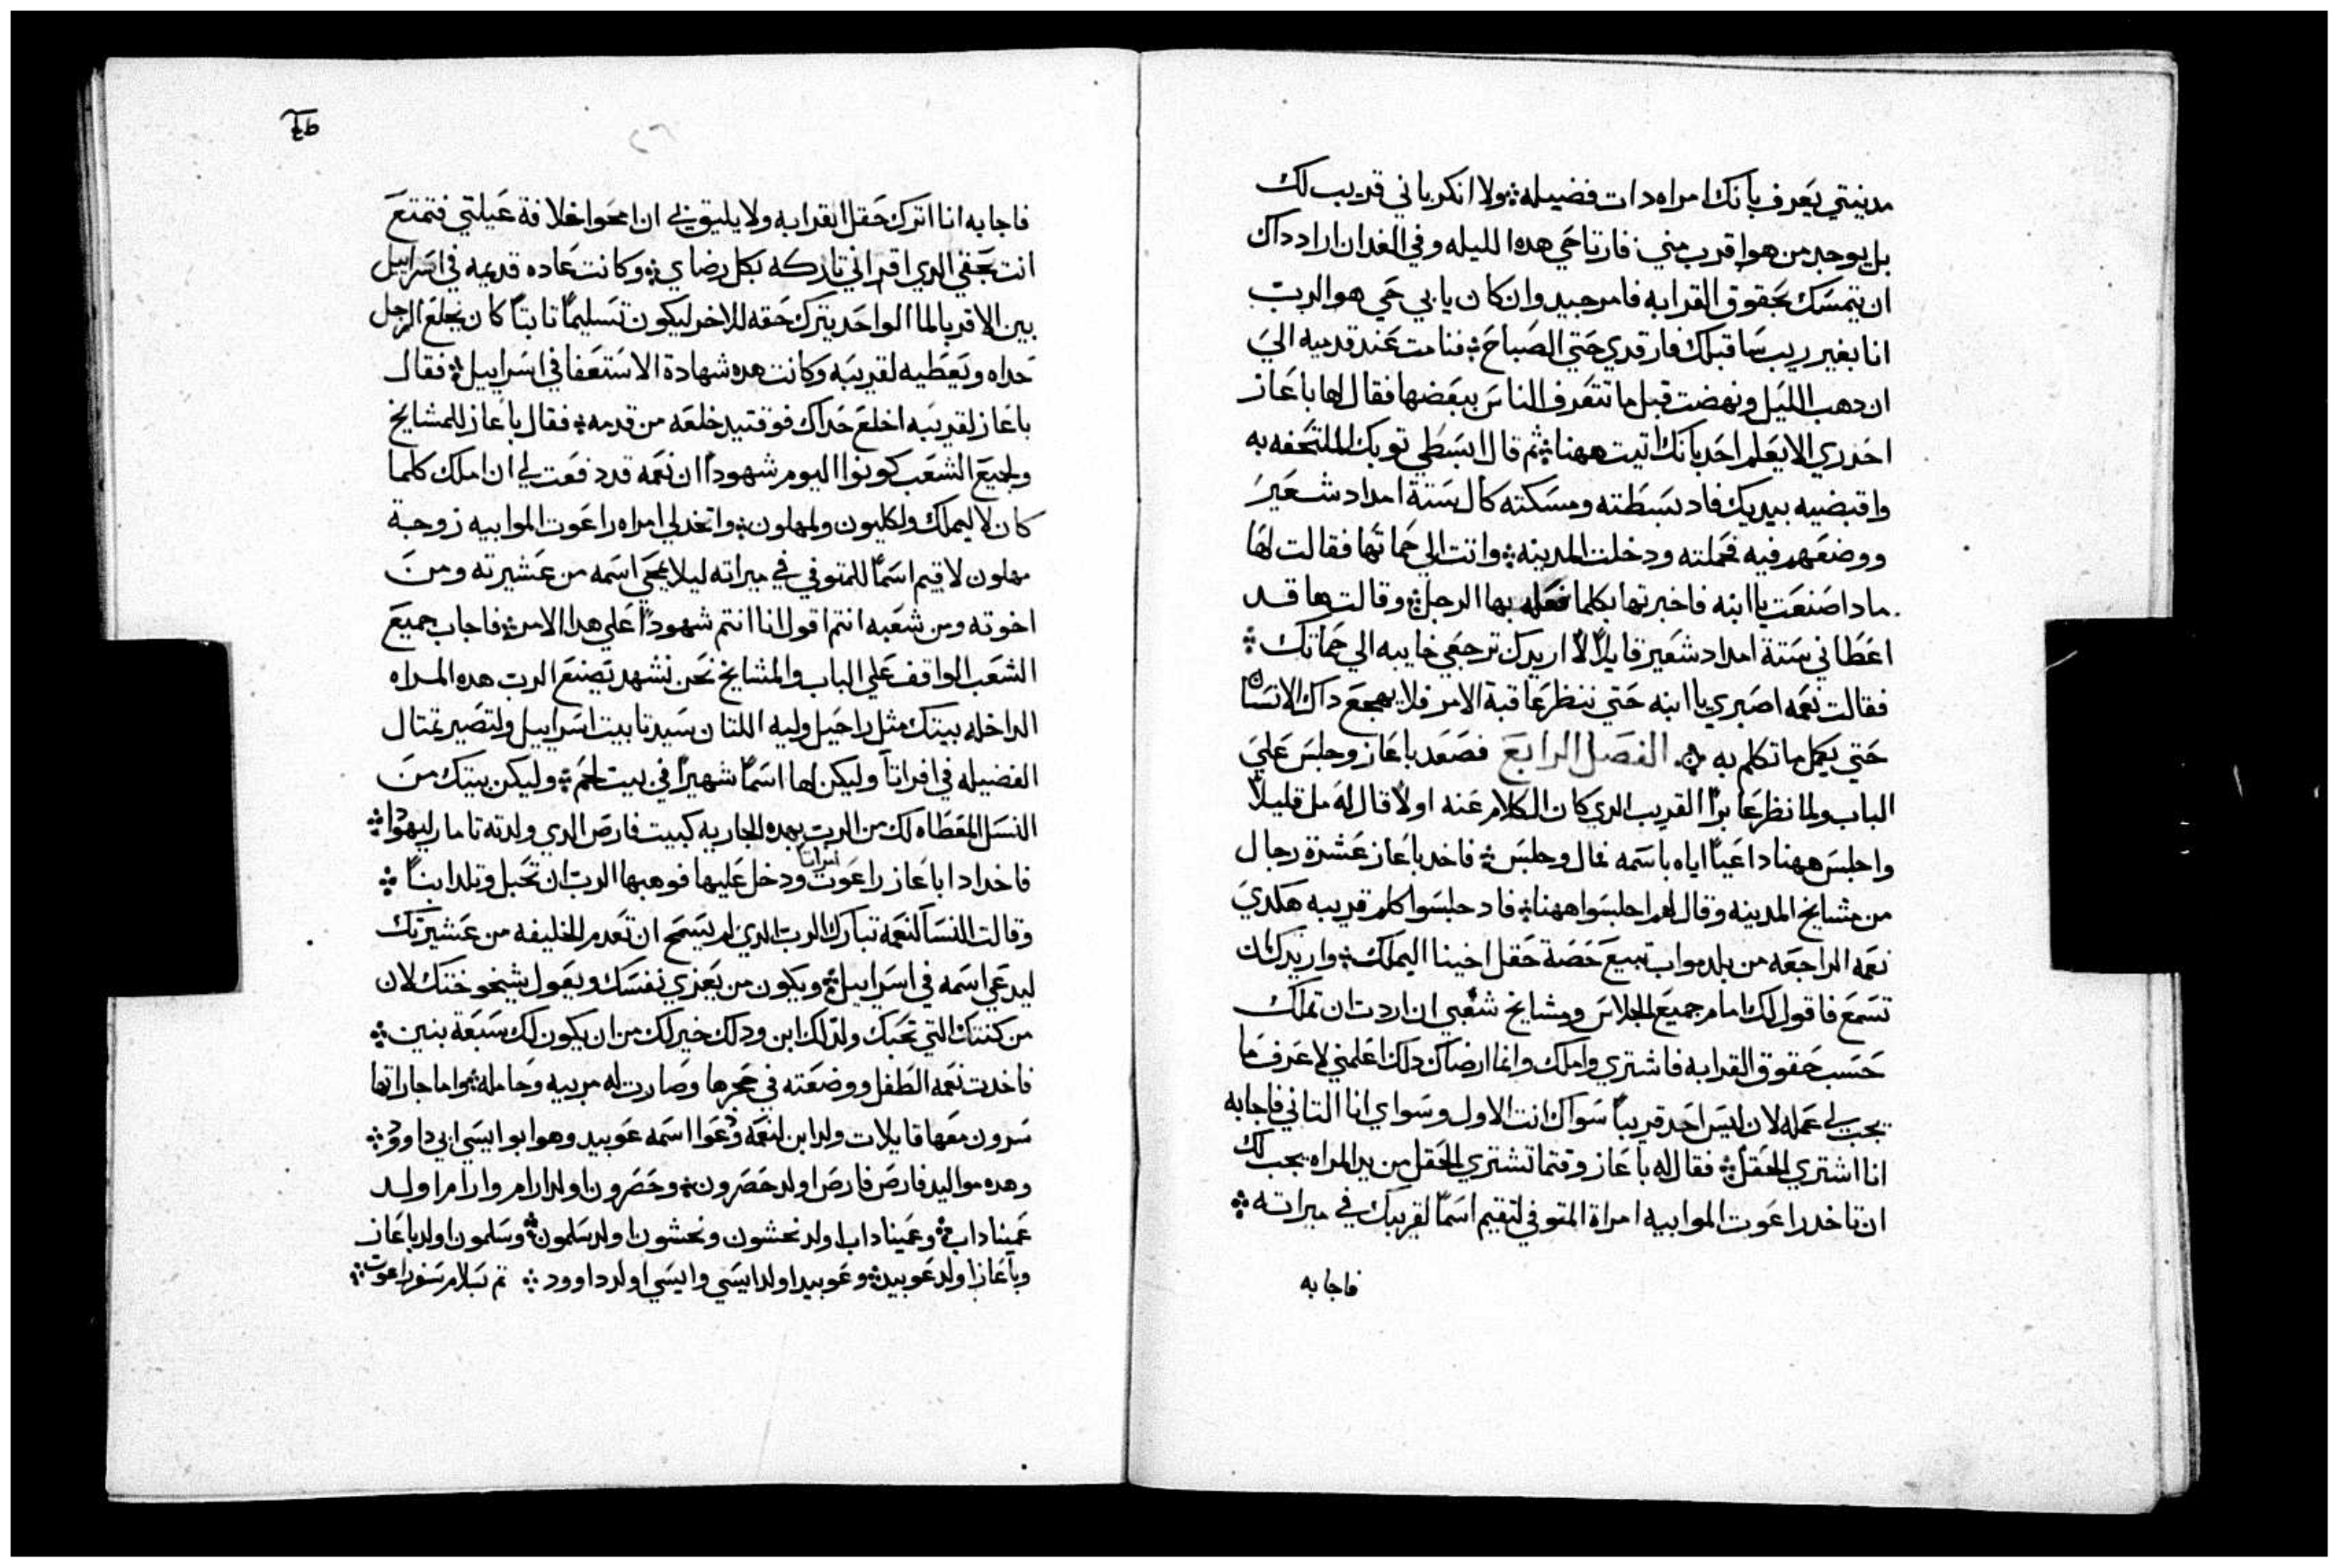 مدينتي يعرف بانك امراه دات فضيله ولا انكر باني قريب لك
بل يوجد من هو اقرب مني فارتاحي هده الليله وفي الغد ان اراد داك
ان يتمسك بحقوق القرابه فامر جيد وان كان يابي حي هو الرب
انا بغير ريب ساقبلك فارقدي حتي الصباح فنامت عند قدميه الي
ان دهب الليل ونهضت قبل ما تتعرف الناس ببعضها فقال لها باعاز
احدري الا يعلم احد بانك اتيت ههنا ثم قال ابسطي توبك الملتحفه به
واقبضيه بيديك فاد بسطته ومسكته كال ستة امداد شعير
ووضعهم فيه فحملته ودخلت المدينه واتت الي حماتها فقالت لها
مادا صنعت يا ابنه فاخبرتها بكلما فعله بها الرجل وقالت ها قد
اعطاني ستة امداد شعير قايلاً لا اريدك ترجعي خايبه الي حماتك
فقالت نعمه اصبري يا ابنه حتي ننظر عاقبة الامر فلا يهجع داك الانسان
حتي يكمل ما تكلم به الفصل الرابع فصعد باعاز وجلس علي
الباب ولما نظر عابراً القريب الدي كان الكلام عنه اولاً قال له مل قليلاً
واجلس ههنا داعياً اياه باسمه فمال وجلس فاخد باعاز عشرة رجال
من مشايخ المدينه وقال لهم اجلسوا ههنا فاد جلسوا كلم قريبه هكدي
نعمه الراجعه من بلد مواب تبيع حصة حقل اخينا اليملك واريدك ان
تسمع فاقول لك امام جميع الجلاس ومشايخ شعبي ان اردت ان تملك
حسب حقوق القرابه فاشتري واملك وانما ارضاك دلك اعلمني لاعرف ما
يجب لي عمله لان ليس احد قريباً سواك انت الاول وسواي انا التاني فاجابه
انا اشتري الحقل فقال له باعاز وقتما تشتري الحقل من يد المراه يجب لك
ان تاخد راعوت الموابيه امراة المتوفي لتقيم اسماً لقريبك في ميراته
فاجابه
فاجابه انا اترك حقل القرابه ولا يليق لي ان امحوا خلافة عيلتي فتمتع
انت بحقي الدي اقر اني تاركه بكل رضاي وكانت عاده قديمه في اسراييل
بين الاقربا لما الواحد يترك حقه للاخر ليكون تسليماً تابتاً كان يخلع الرجل
حداه ويعطيه لقريبه وكانت هده شهادة الاستعفا في اسراييل فقال
باعاز لقريبه اخلع حداك فوقتيد خلعه من قدمه فقال باعاز للمشايخ
ولجميع الشعب كونوا اليوم شهوداً ان نعمه قد دفعت لي ان املك كلما
كان لاليملك ولكليون ولمهلون واتخد لي امراه راعوت الموابيه زوجة
مهلون لاقيم اسماً للمتوفي في ميراته ليلا يمحي اسمه من عشيرته ومن
اخوته ومن شعبه انتم اقول انا انتم شهوداً علي هدا الامر فاجاب جميع
الشعب الواقف علي الباب والمشايخ نحن نشهد يصنع الرب هده المراه
الداخله بيتك مثل راحيل وليه اللتان سيدتا بيت اسراييل ولتصير تمتال
الفضيله في افراتا وليكن لها اسماً شهيراً في بيت لحم وليكن بيتك من
النسل المعطاه لك من الرب بهده الجاريه كبيت فارص الدي ولدته تامار ليهودا
فاخد ادا باعاز راعوت امراتاً ودخل عليها فوهبها الرب ان تحبل وتلد ابناً
وقالت النسا لنعمه تبارك الرب الدي لم يسمح ان تعدم الخليفه من عشيرتك
ليدعي اسمه في اسراييل ويكون من يعزي نفسك ويعول شيخوختك لان
من كنتك التي تحبك ولد لك ابن ودلك خير لك من ان يكون لك سبعة بنين
فاخدت نعمه الطفل ووضعته في حجرها وصارت له مربيه وحامله واما جاراتها
سرون معها قايلات ولد ابن لنعمه ودعوا اسمه عوبيد وهو ابو ايسي ابي داوود
وهده مواليد فارص فارص اولد حصرون وحصرون اولد ارام وارام اولد
عميناداب وعميناداب اولد نحشون ونحشون اولد سلمون وسلمون اولد باعاز
وباعاز اولد عوبيد وعوبيد اولد ايسي وايسي اولد داوود تم بسلام سفر راعوت